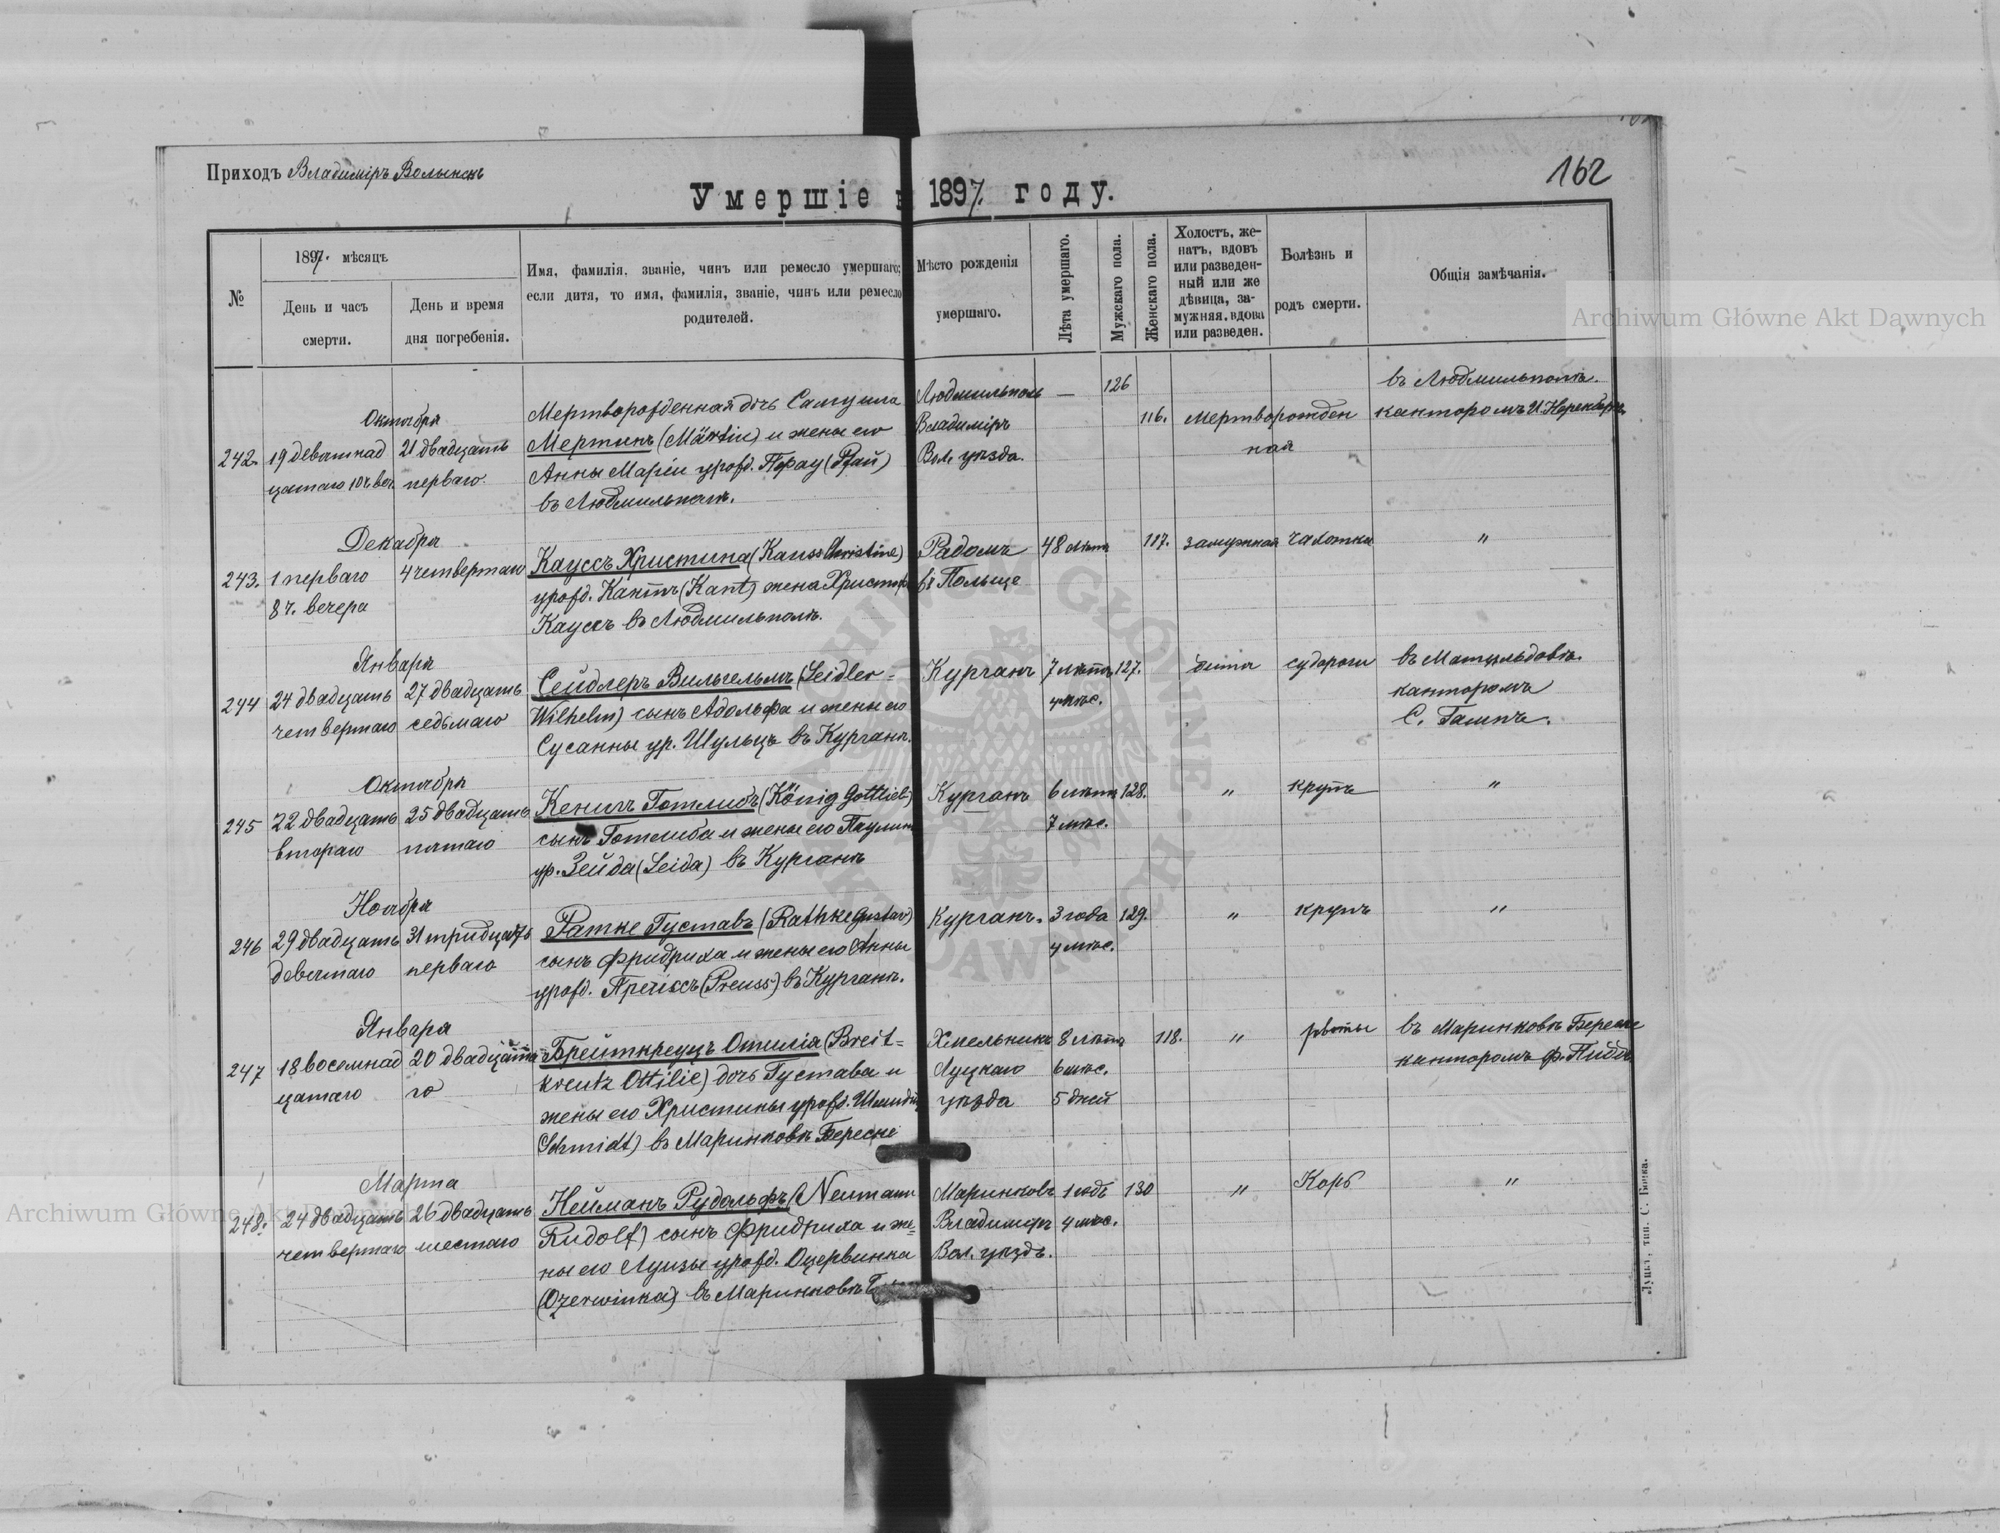 Приходъ Владимiръ Волынск
162
Умершіе 1897. году.
№
1897. мѣсяцъ
День и часъ
смерти.
День и время
дня погребенія.
Имя, фамилія, званіе, чинъ или ремесло умершаго;
если дитя, то имя, фамилія, званіе, чинъ или ремесло
родителей.
Мѣсто рожденія
умершаго.
Лѣта умершаго.
Мужскаго пола.
Женскаго пола.
Холостъ, же-
натъ, вдовъ
или разведен-
ный или же
дѣвица, за-
мужняя, вдова
или разведен.
Болѣзнь и
родъ смерти.
Общія замѣчанія.
Archiwum Główne Akt Dawnych
242.
Октября
19 девятнад
цатаго 10 ч веч.
21 двадцать
перваго
Мертворожденная дочь Самуила
Мертинъ (Märtin) и жены его
Анны Маріи урожд. Пфау (Pfau)
въ Людмильполѣ.
Людмильполь
Владиміръ
Вол. уѣзда.
—
126
116.
Мертворожден
ная
въ Людмильполѣ.
канторомъ И.
243.
Декабря
1 перваго
8 ч. вечера
4 четвертаго
Кауссъ Христина (Kauss Christine)
урожд. Кантъ (Kant) жена
Кауссъ въ Людмильполѣ.
Радомъ
въ Польще
48 лѣтъ
117.
замужная
чахотка
"
244
Января
24 двадцать
четвертаго
27 двадцать
седьмаго
Сейдлеръ Вильгельмъ (Seidler=
Wilhelm) сынъ Адольфа и жены его
Сусанны ур. Шульцъ въ Курганѣ.
Курганъ
7 лѣтъ
4 мѣс.
127.
дитя
судороги
въ Матильдовкѣ
канторомъ
С.
245
Октября
22 двадцать
втораго
25 двадцать
пятаго
Кенигъ Готлибъ (König Gottlieb)
сынъ Готлиба и жены его
ур. Зейда (Seida) въ Курганѣ
Курганъ
6 лѣтъ
7 мѣс.
128.
"
крупъ
"
246
Ноября
29 двадцать
девятаго
31 тридцать
перваго
Ратке Густавъ (Rathke Gustav)
сынъ Фридриха и жены его Анны
урожд. Прейссъ (Preuss) въ Курганѣ.
Курганъ.
3 года
4 мѣс.
129.
"
крупъ
"
247
Января
18 восемнад
цатаго
20 двадцата
го
Брейткрецъ Отилія (Breit=
kreutz Ottilie) дочь Густава и
жены его Христины урожд. Шмидтъ
Schmidt) въ Маринковкѣ Береске
Хмельникъ
Луцкаго
уѣзда
8 лѣтъ
6 мѣс.
5 дней
118.
"
рвоты
въ Маринковкѣ
канторомъ Ф.
248.
Марта
24 двадцать
четвертаго
26 двадцать
шестаго
Нейманъ Рудольфъ (Neumann
Rudolf) сынъ Фридриха и же=
ны его Луизы урожд. Оцервинка
(Ozerwinka) въ Маринковкѣ
Маринковъ
Владиміръ
Вол. уѣздъ.
1 годъ
4 мѣс.
130
"
Корь
"
Archiwum Główne Akt Dawnych
Луцкъ, тип. С. Бонка.